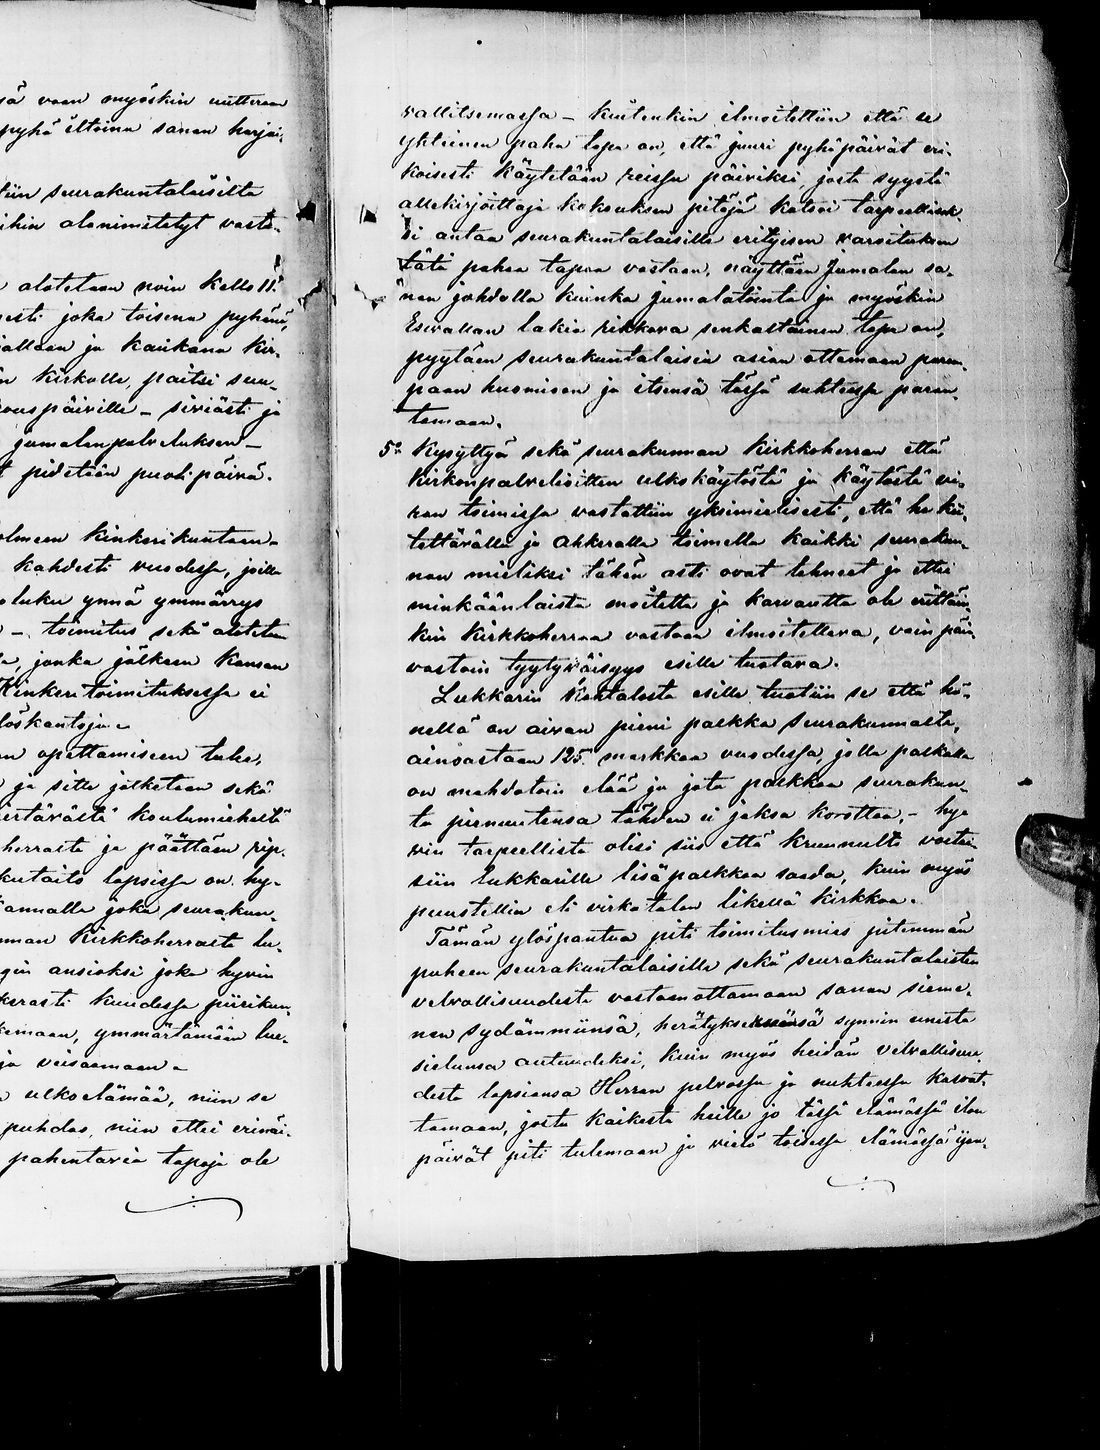 sä vaan myöskin uutteraan
pyhä iltoina sanan harjoi-
tiin seurakuntalaisilta
ihin alanimitetyt vasta-
alotetaan noin kello 11.
sesti joka toisena pyhänä,
allaan ja kaukana kir-
n kirkolle, paitsi suu-
ouspäiville – siviästi ja
jumalanpalveluksen –
t pidetään puoli päivä.
olmeen kinkerikuntaan –
kahdesti vuodessa, joilla
oluku ynnä ymmärrys
– toimitus sekä aloteta
a, jonka jälkeen kansan
Kinkeritoimituksessa ei
löskantoja –
an opettamiseen tulee,
ja sitte jatketaan sekä
iertävältä koulumieheltä
herralta ja päättäen rip-
kutaito lapsissa on hy-
annalla joka seurakun-
nnan Kirkkoherralta lu-
gin ansioksi joka hyvin
kerasti kuudessa piirikun-
kemaan, ymmärtämään lue-
ja veisaamaan –
ulkoelämää, niin se
puhdas, niin ettei erinäi-
pahentavia tapoja ole
vallitsemassa – kuitenkin ilmoitettiin että se
yhteinen paha tapa on, että juuri pyhäpäivät eri-
koisesti käytetään reissu päiviksi josta syystä
allekirjoittaja kokouksen pitäjä katsoi tarpeellisek-
si antaa seurakuntalaisille erityisen varoituksen
tätä pahaa tapaa vastaan, näyttäen Jumalan sa-
nan johdolla kuinka jumalatointa ja myöskin
Esivallan lakia rikkova senkaltainen tapa on,
pyytäen seurakuntalaisia asian ottamaan parem-
paan huomioon ja itsensä tässä suhteessa paran-
tamaan.
5:o Kysyttyä sekä seurakunnan Kirkkoherran että
Kirkonpalvelioitten ulkokäytöstä ja käytöstä vi-
ran toimissa vastattiin yksimielisesti, että he kii-
tettävällä ja ahkeralla toimella kaikki seurakun-
nan mieliksi tähän asti ovat tehneet ja ettei
minkäänlaista moitetta ja karvautta ole erittäin-
kin Kirkkoherraa vastaan ilmoitettava, vain päin
vastoin tyytyväisyys esille tuotava.
Lukkarin kohtalosta esille tuotiin se että hä-
nellä on aivan pieni palkka seurakunnalta,
ainoastaan 125 markkaa vuodessa, jolla palkalla
on mahdotoin elää ja jota palkkaa seurakun-
ta pienuutensa tähden ei jaksa korottaa, – hy-
vin tarpeellista olisi siis että kruunulta voitai-
siin lukkarille lisäpalkkaa saada, kuin myös
puustellin eli virkatalon likellä kirkkoa.
Tämän ylöspantua piti toimitusmies pitemmän
puheen seurakuntalaisille sekä seurakuntalaisten
velvollisuudesta vastaanottamaan sanan sieme-
nen sydämmiinsä, herätykseksensä synnin unesta
sielunsa autuudeksi, kuin myös heidän velvollisuu-
desta lapsiansa Herran pelvossa ja nuhteessa kasvat-
tamaan, josta kaikesta heille jo tässä elämässä ilon
päivät piti tulemaan ja vielä toisessa elämässä ijan-